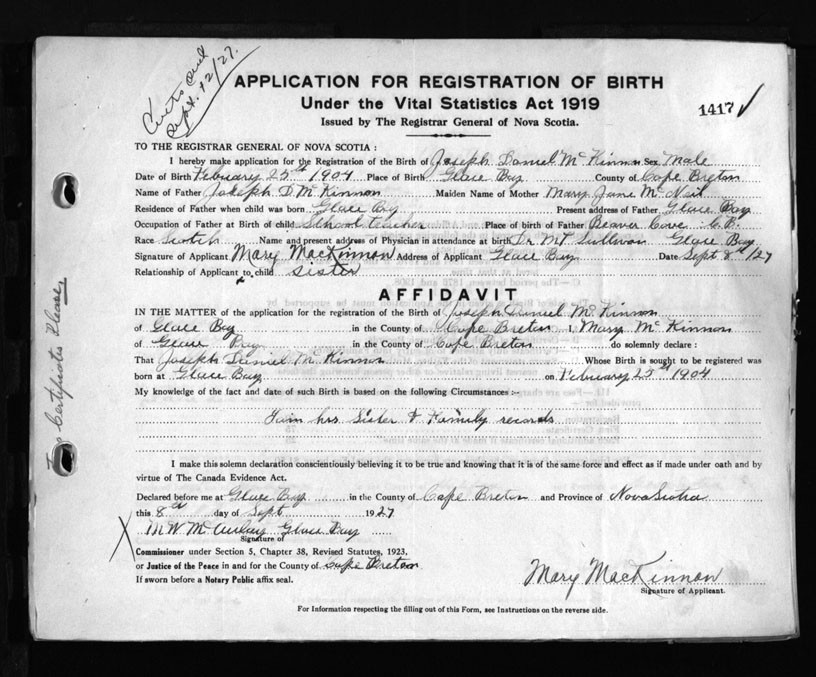 Certs and
Sept. 12/27.
APPLICATION FOR REGISTRATION OF BIRTH
Under the Vital Statistics Act 1919
Issued by The Registrar General of Nova Scotia.
1417
TO THE REGISTRAR GENERAL OF NOVA SCOTIA :
I hereby make application for the Registration of the Birth of Joseph Daniel McKinnon Sex Male
Date of Birth February 25th 1904 Place of Birth Glace Bay County of Cape Breton
Name of Father Joseph D McKinnon Maiden Name of Mother Mary Jane McNeil
Residence of Father when child was born Glace Bay Present address of Father Glace Bay
Occupation of Father at Birth of child School teacher Place of birth of Father Beaver Cove C.B.
Race Scotch Name and present address of Physician in attendance at birth Dr MT Sullivan Glace Bay
Signature of Applicant Mary MacKinnon Address of Applicant Glace Bay Date Sept 8th/27
Relationship of Applicant to child Sister
AFFIDAVIT
IN THE MATTER of the application for the registration of the Birth of Joseph Daniel McKinnon
of Glace Bay in the County of Cape Breton I, Mary McKinnon
of Glace Bay in the County of Cape Breton do solemnly declare :
That Joseph Daniel McKinnon Whose Birth is sought to be registered was
born at Glace Bay on February 25th 1904
My knowledge of the fact and date of such Birth is based on the following Circumstances :-
I am his Sister & Family records
I make this solemn declaration conscientiously believing it to be true and knowing that it is of the same force and effect as if made under oath and by
virtue of The Canada Evidence Act.
Declared before me at Glace Bay in the County of Cape Breton and Province of Nova Scotia
this 8th day of Sept 1927
M W McAulay Glace Bay
Signature of
Commissioner under Section 5, Chapter 38, Revised Statutes, 1923,
or Justice of the Peace in and for the County of Cape Breton
If sworn before a Notary Public affix seal.
Mary MacKinnon
Signature of Applicant.
For Information respecting the filling out of this Form, see Instructions on the reverse side.
Certificates Please